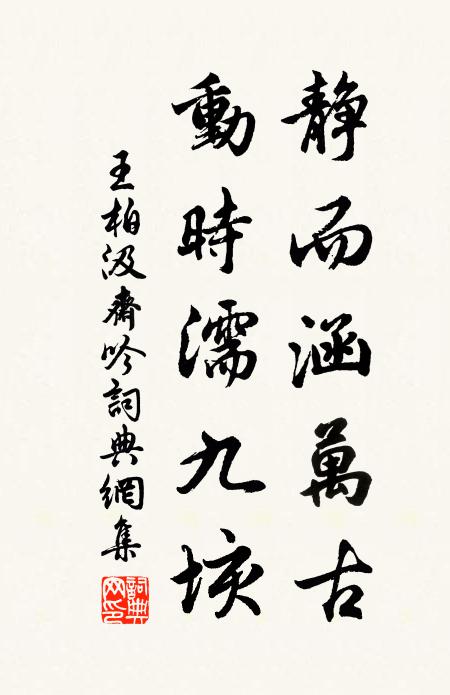 静而涵萬古
動時濡九垓
王柏汲齋吟詞典網集
詞典网印